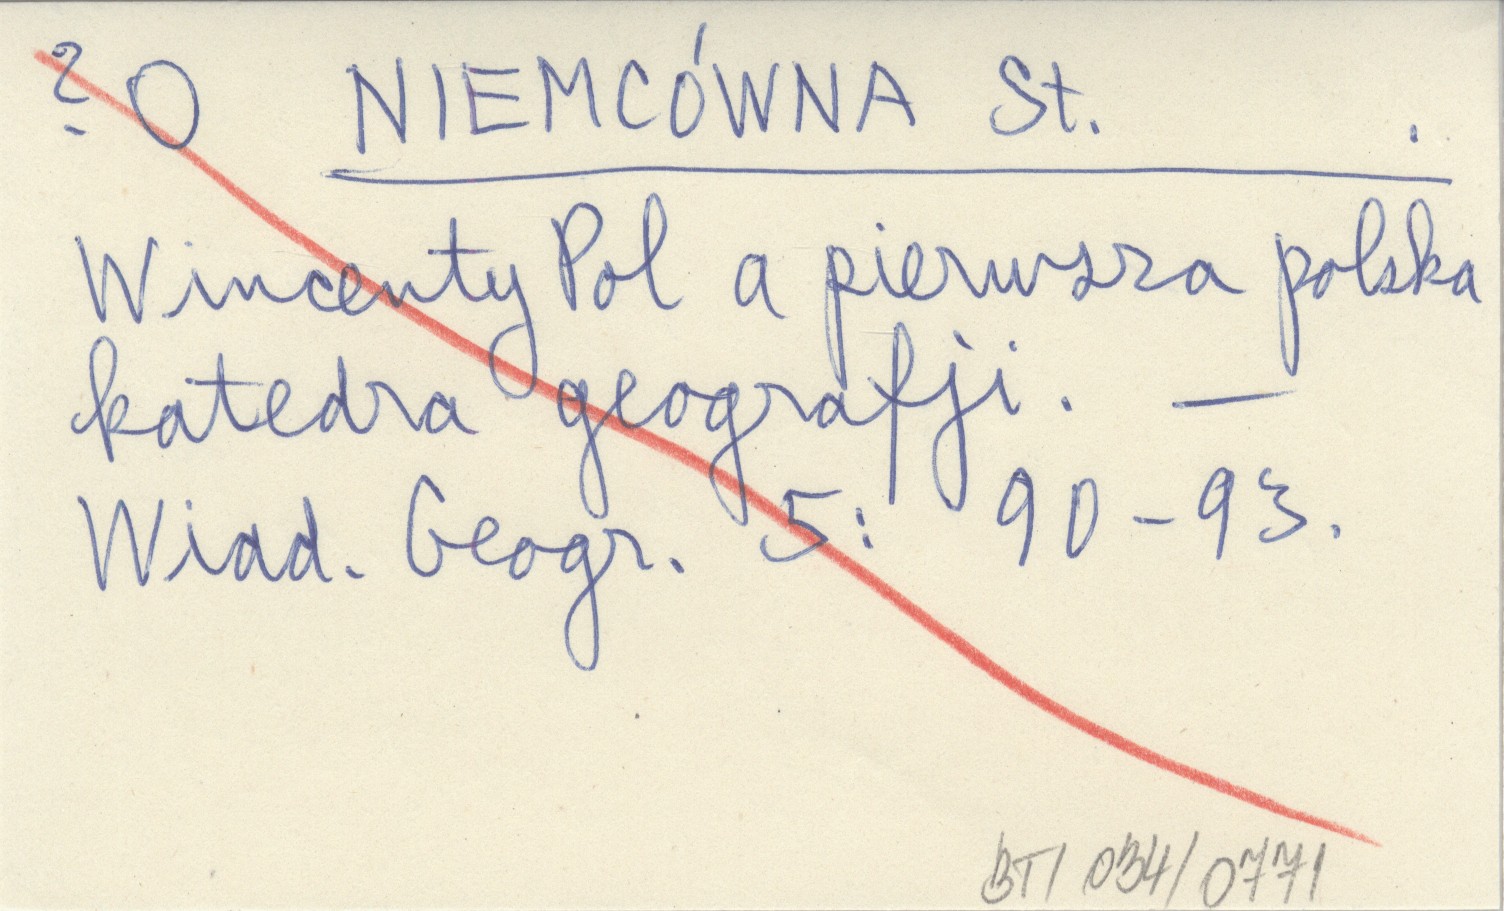 ? O NIEMCÓWNA St. .
Wincenty Pol a pierwsza polska
katedra geografji. —
Wiad. Geogr. 5: 90-93.
BT/ 034/0771